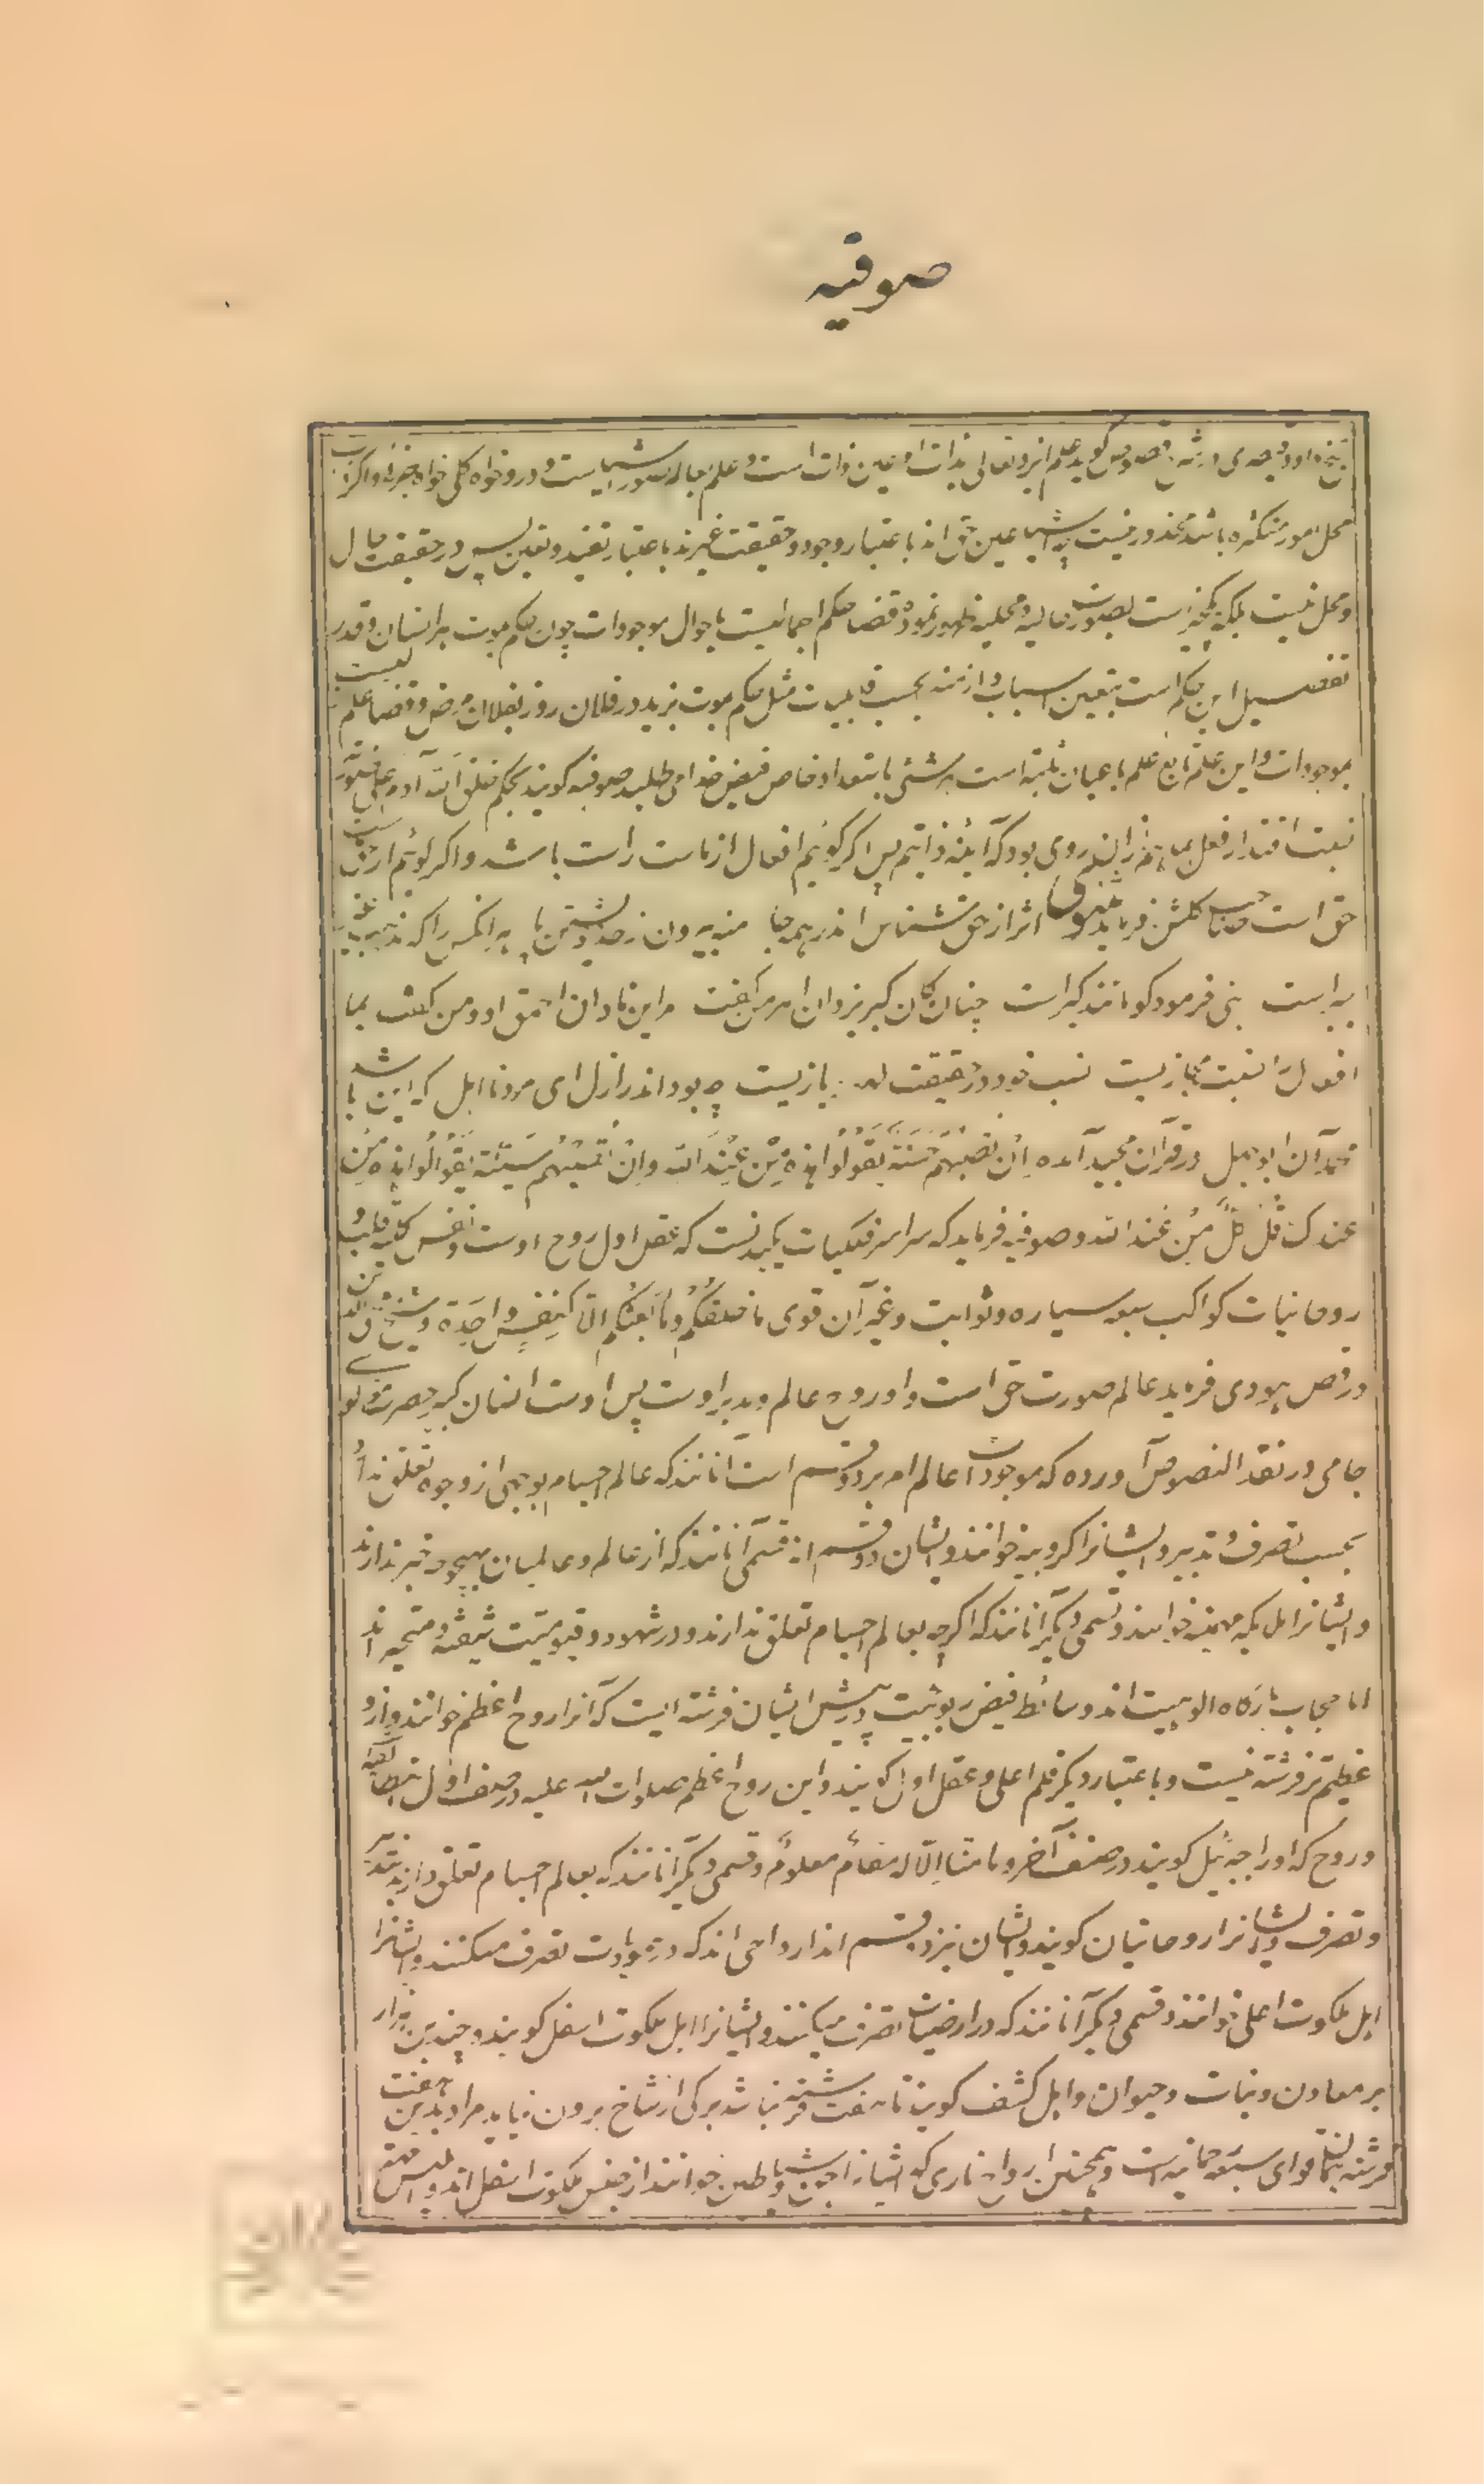 صوفیه
شیخ داود قیصری در شرح فصوص گوید علم ایزد تعالی بذات او عین ذات است و علم بعالم صور اشیاست درو خواه کلی خواه جزوی و اگر
محل امور متکثره باشد محذور نیست چه اشیا عین حق اند باعتبار وجود و حقیقت غیرند باعتبار تقید و تعین پس در حقیقت حال
و محل نیست بلکه یکچیزست بصورت حالیه و محلیه ظهور نموده قضا حکم اجمالیست باحوال موجودات چون حکم موت هر انسان و قدر
تفصیل این حکم است بتعین اسباب و ازمنه بحسب قابلیت مثل حکم موت بزید در فلان روز بفلان مرض و قضا علم
بموجودات و این علم تابع علم باعیان ثابته است هر شئی باستعداد خاص فیض خدا می طلبد صوفیه گویند بحکم خلق الله آدم علی صورته
نسبت اقتدار فعل بما از روی بود که آینه ذاتیم پس اگر گوئیم افعال از ماست راست باشد و اگر گوئیم از
حق است صاحب گلشن فرماید مثنوی اثر از حق شناس اندر همه جا منه بیرون ز حد خویشتن پا هر آنکس را که مذهب غیر
جبر است نبی فرمود کو مانند گبر است چنان کان گبر یزدان اهرمن گفت مر این نادان احمق او و من گفت بما
افعال را نسبت مجازیست نسب خود در حقیقت لهو و بازیست چه بود اندر ازل ای مرد نااهل که این باشد
محمد آن ابوجهل در قرآن مجید آمده اِن تُصِبهُم حَسَنَةٌ یَقُولُوا هذِهِ مِن عِندِ الله وَاِن تُصِبهُم سَیِّئَةٌ یَقُولُوا هذِهِ مِن
عندک قُل کُلٌّ مِن عند الله و صوفیه فرماید که سراسر فلکیات یکبدنست که عقل اول روح اوست و نفس کلیه قلب
روحانیات کواکب سبعه سیاره و ثوابت و غیر آن قوی ما خلقُکُم ولا بَعثُکُم الّا کنفسٍ واحِدَةٍ و شیخ
در فص هودی فرماید عالم صورت حق است و او روح عالم و مدبر اوست پس اوست انسان کبیر حضرت مولوی
جامی در نقد النصوص آورده که موجودات عالم امر بر دو قسم است آنانند که عالم اجسام بوجهی از وجوه تعلق ندارند
بحسب تصرف و تدبیر و ایشانرا کروبیه خوانند و ایشان دو قسم اند قسمی آنانند که از عالم و عالمیان بهیچوجه خبر ندارند
و ایشانرا ملائکه مهیمه خوانند و قسمی دیگر آنانند که اگرچه بعالم اجسام تعلق ندارند و در شهود و قیومیت شیفته و متحیر اند
اما حجاب بارگاه الوهیت اند و سائط فیض ربوبیت و رئیس ایشان فرشته ایست که آنرا روح اعظم خوانند و ازو
عظیم تر فرشته نیست و باعتبار دیگر قلم اعلی و عقل اول گویند و این روح اعظم صلوات الله علیه در صف اول
و روح که او را جبرئیل گویند در صف آخر و ما منا اِلّا له مقامٌ معلومٌ و قسمی دیگر آنانند که بعالم اجسام تعلق دارند بتدبیر
و تصرف و ایشانرا روحانیان گویند و ایشان نیز دو قسم اند ارواحی اند که در سماویات تصرف میکنند و ایشانرا
اهل ملکوت اعلی خوانند و قسمی دیگر آنانند که در ارضیات تصرف میکنند و ایشانرا اهل ملکوت اسفل گویند و چندین هزار
بر معادن و نبات و حیوان و اهل کشف گویند تا هفت فرشته نباشد برگی از شاخ برون نیاید مراد بدین هفت
فرشته قوای سبعه است و همچنین ارواح ناری که ایشانرا جن و شیاطین خوانند از جنس ملکوت اسفل اند و ابلیس